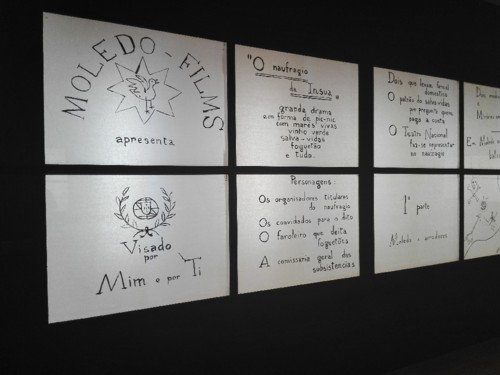 MOLEDO-FILMS
apresenta
"O naufragio
da Insua"
grande drama
em forma de pic-nic
com mares vivas
vinho verde
salva-vidas
foguetão
e tudo.
Dois que
O patrão do salva-vidas
que pergunta quem
paga a conta
O Teatro Nacional
faz-se representar
no naufragio
Dois
e
Em Moledo
Visado
por
Mim e por Ti
Personagens:
Os organisadores titulares
do naufragio
Os convidados para o dito
O faroleiro que deita
foguetões
A comissaria geral das
subsistencias
1ª parte
Moledo e arredores